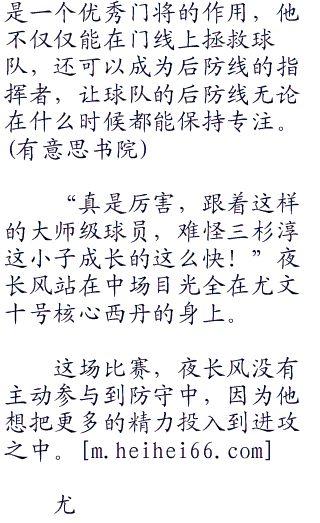 是一个优秀门将的作用，他
不仅仅能在门线上拯救球
队，还可以成为后防线的指
挥者，让球队的后防线无论
在什么时候都能保持专注。
(有意思书院)
“真是厉害，跟着这样
的大师级球员，难怪三杉淳
这小子成长的这么快！”夜
长风站在中场目光全在尤文
十号核心西丹的身上。
这场比赛，夜长风没有
主动参与到防守中，因为他
想把更多的精力投入到进攻
之中。[m.heihei66.com]
尤